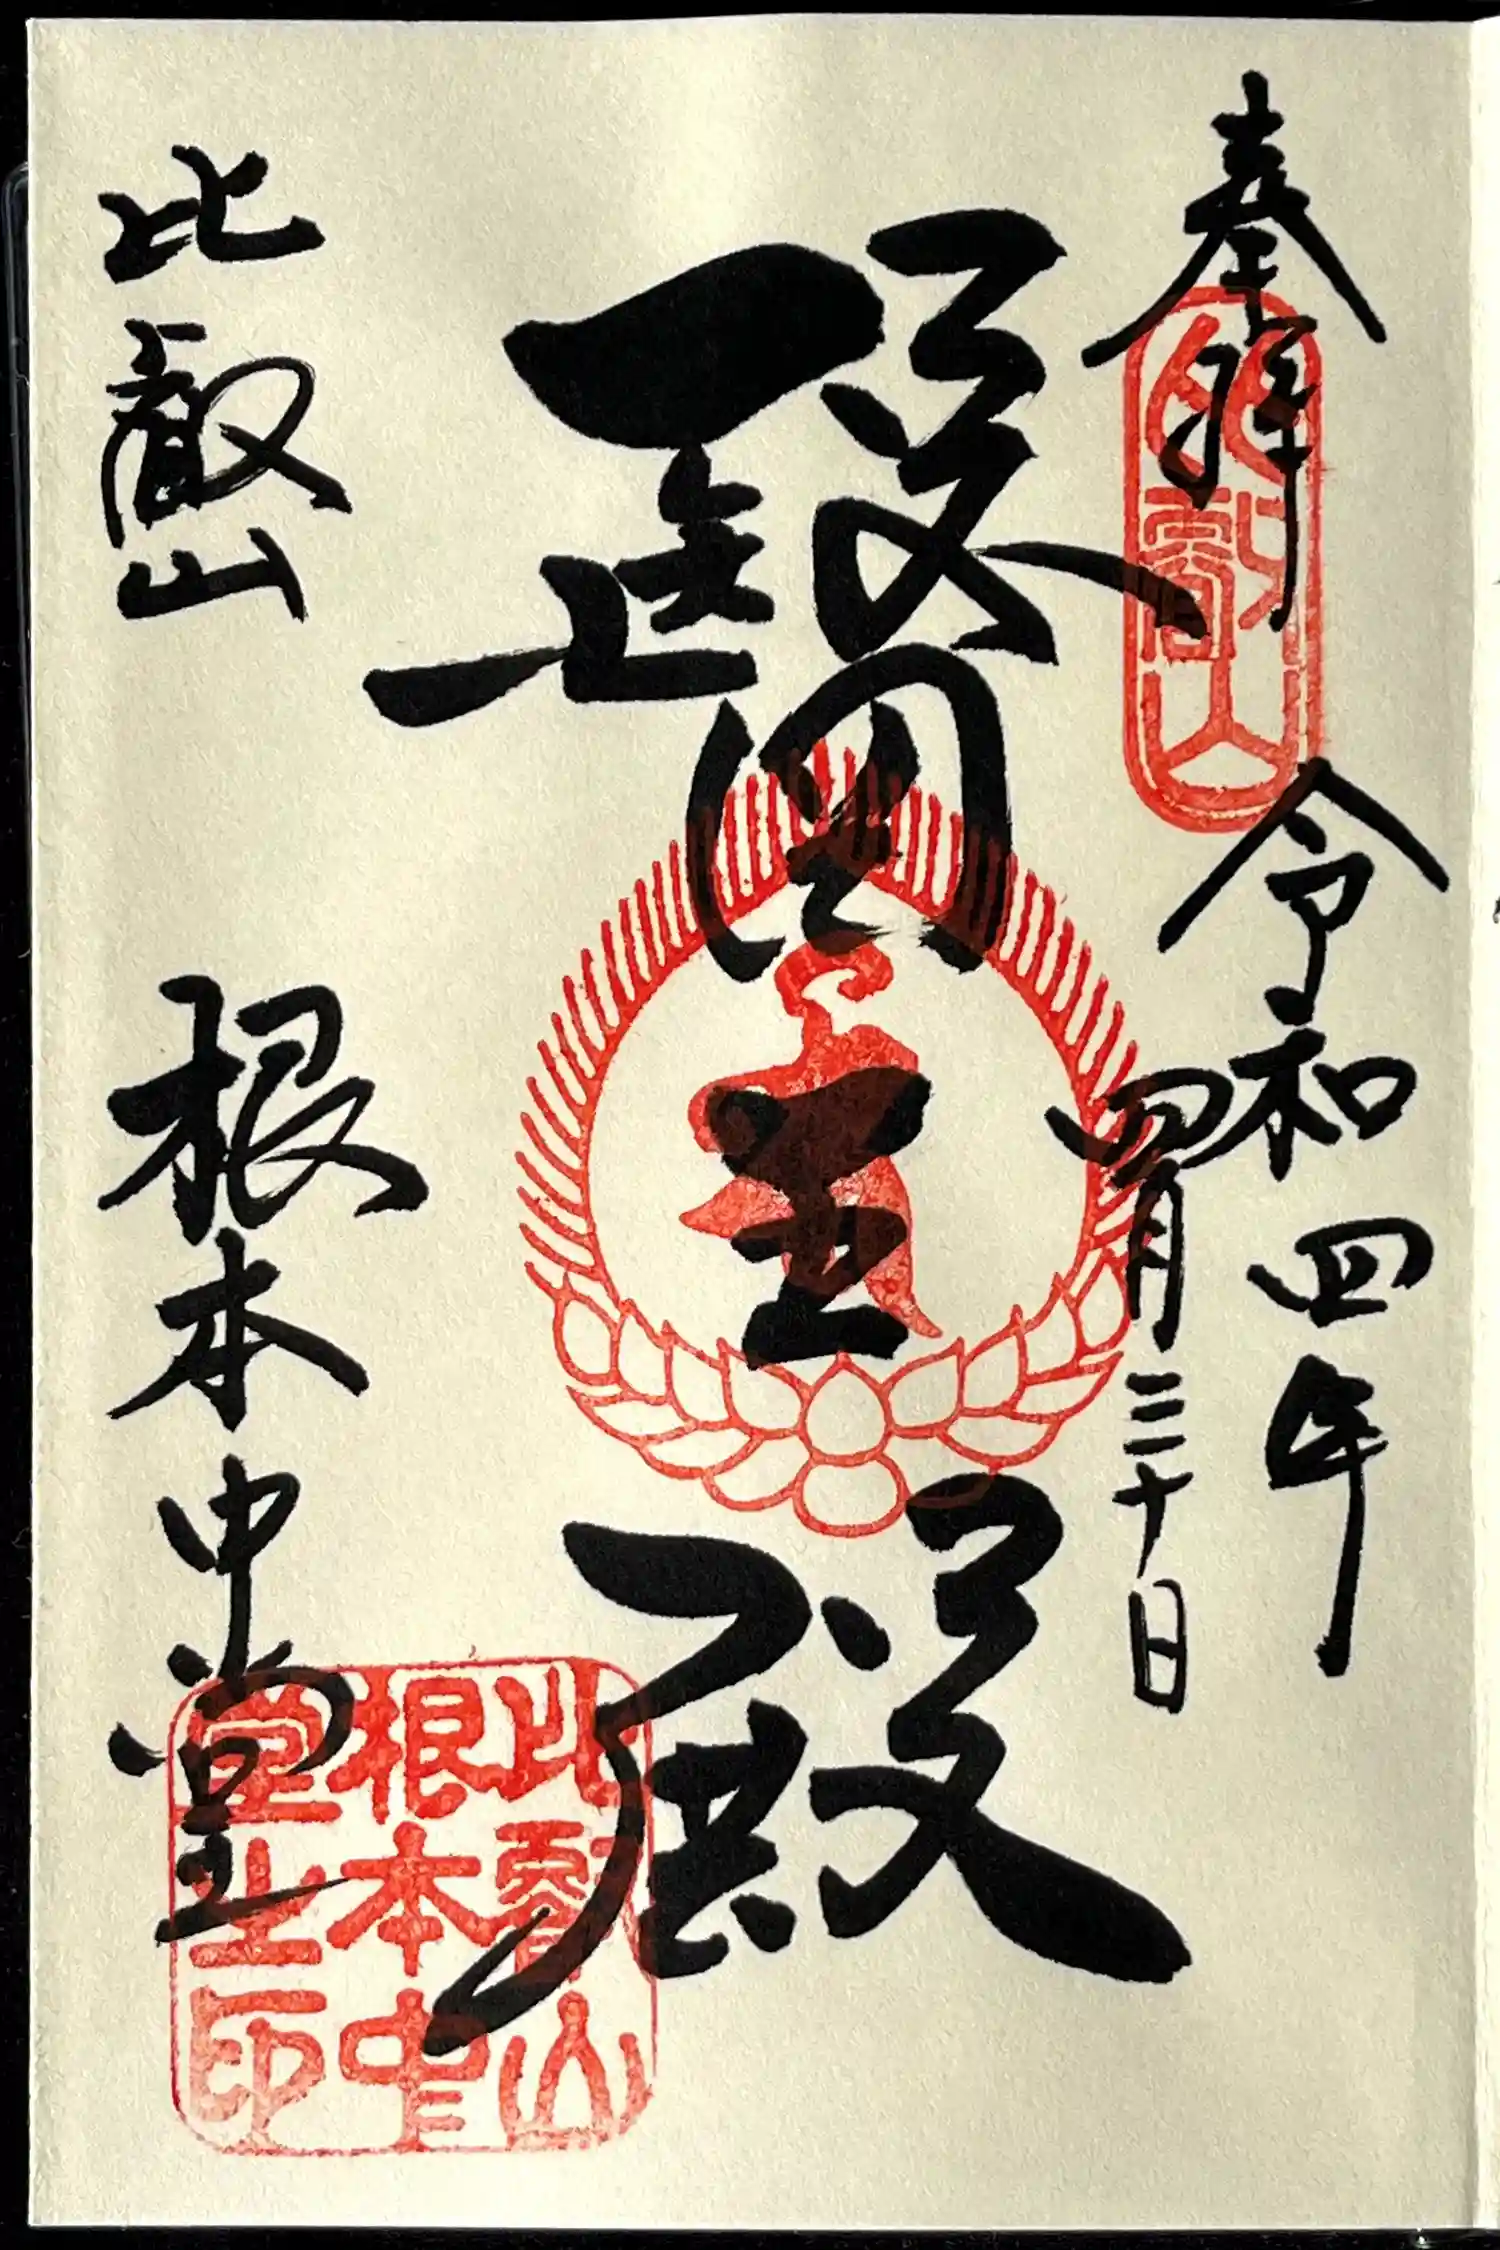 奉拝
比叡山
令和四年
四月三十日
醫王殿
比叡山 根本中堂
比叡山
根本中
堂之印